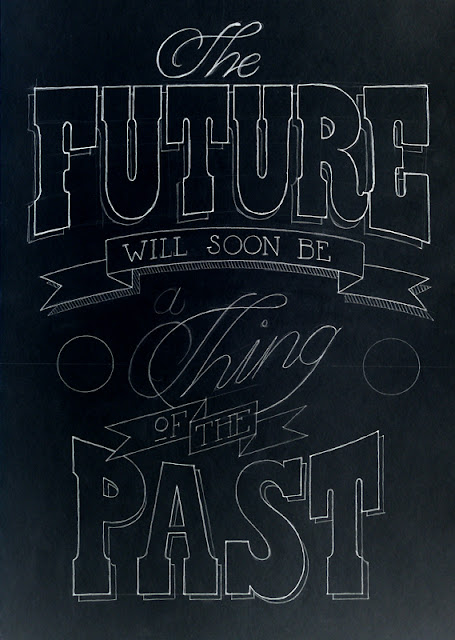 The
FUTURE
WILL SOON BE
a
Thing
OF THE
PAST